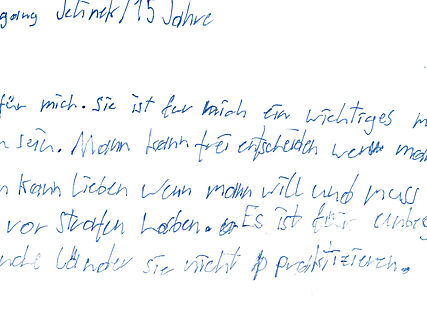 gang Jelinek/15 Jahre
für mich. Sie ist für mich ein wichtiges m
n sein. Mann kann frei entscheiden wenn man
n kann lieben wenn mann will und muss
vor strafen haben. Es ist für unbeg
nche Länder sie nicht praktizieren.